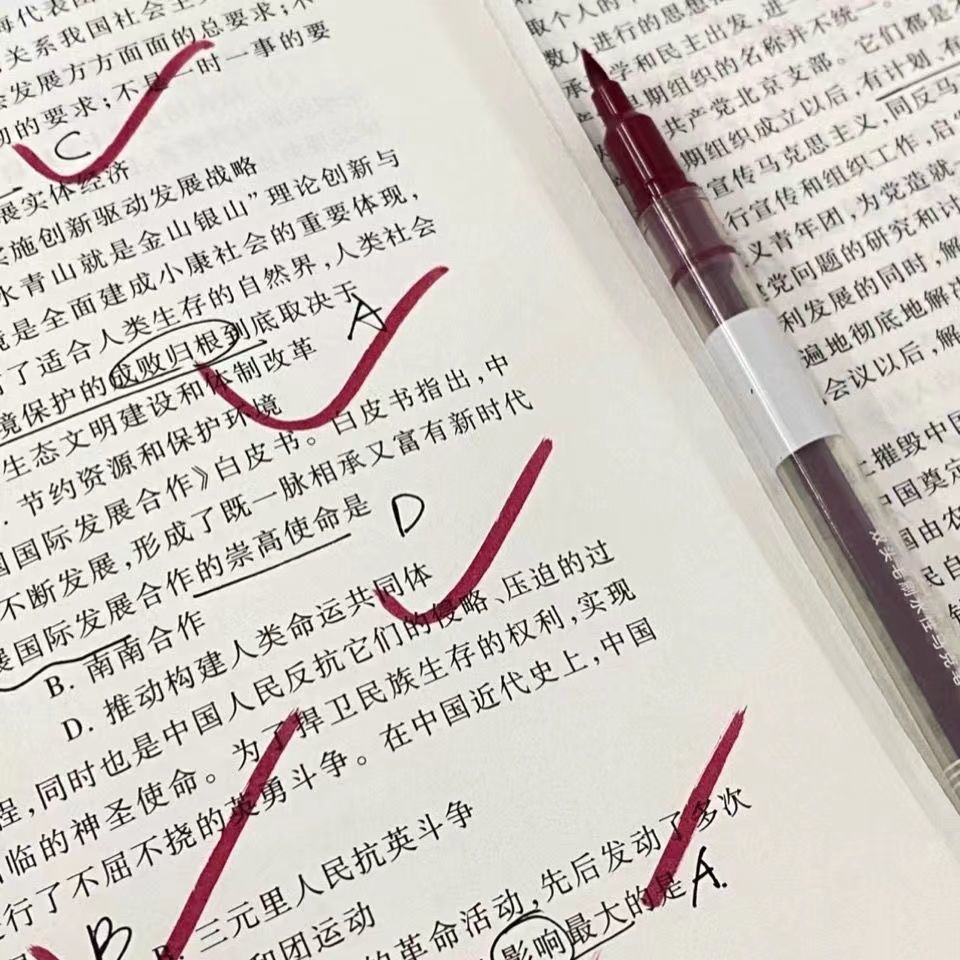 关系我国社会主
会发展方方面面的总要求;不
不是一时一事的要
的要求;
C
展实体经济
实施创新驱动发展战略
水青山就是金山银山”理论创新与
境是全面建成小康社会的重要体现,
了适合人类生存的自然界,人类社会
境保护的成败归根到底取决于
A
生态文明建设和体制改革
节约资源和保护环境
国国际发展合作》白皮书。白皮书指出,中
不断发展,形成了既一脉相承又富有新时代
展国际发展合作的崇高使命是
D
B. 南南合作
D. 推动构建人类命运共同体
程,同时也是中国人民反抗它们的侵略、压迫的过
临的神圣使命。为了捍卫民族生存的权利,实现
行了不屈不挠的英勇斗争。在中国近代史上,中国
B
B. 三元里人民抗英斗争
和团运动
的革命活动,先后发动了多次
影响最大的是
A.
取个人的
数人进行的思想
学和民主出发,进一
早期组织的名称并不统一。它们都是
共产党北京支部。
期组织成立以后,有计划、有
宣传马克思主义,同反马
行宣传和组织工作,启
义青年团,为党造就
党问题的研究和讨
利发展的同时,解
遍地彻底地解决
会议以后,解
上摧毁中国
中国奠定
国由农
民自